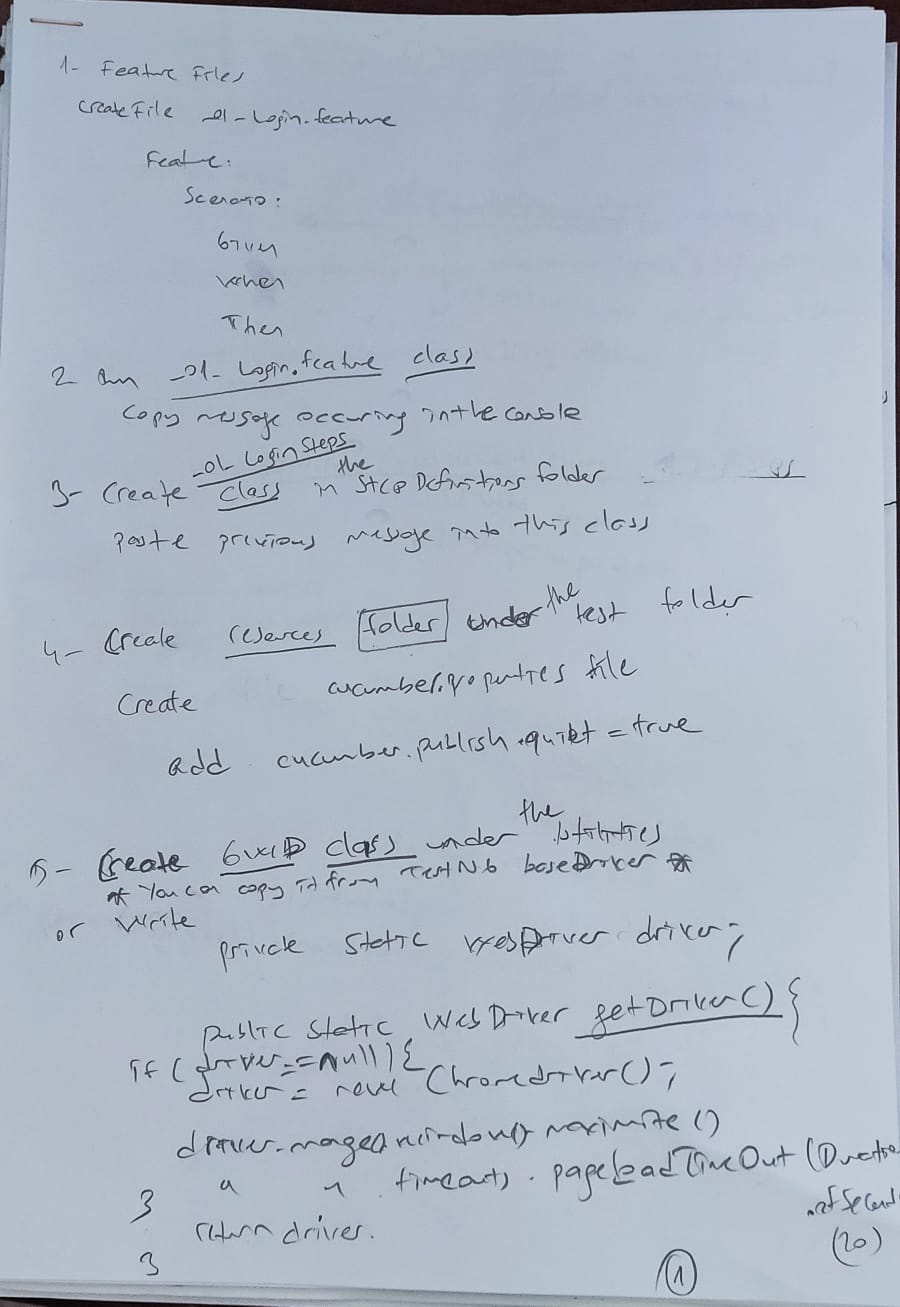 1- Feature Files
Create File _01-Login.feature
Feature:
Scenario:
Given
When
Then
2 Run _01-Login.feature class
Copy message occuring in the console
3- Create _01 Login Steps class in the Step Definitions folder
paste previous message into this class
4- Create resources folder under the test folder
Create cucumber.properties file
add cucumber.publish.quiet = true
5- Create GWD class under the Utilities
* You can copy it from TestNG baseDriver *
or Write
private static WebDriver driver;
public static WebDriver getDriver() {
if (driver==null) {
driver = new Chromedriver();
driver.manage().window().maximize()
" " timeouts. pageLoadTimeOut (Duration
.ofSecond
(20)
}
return driver.
}
1